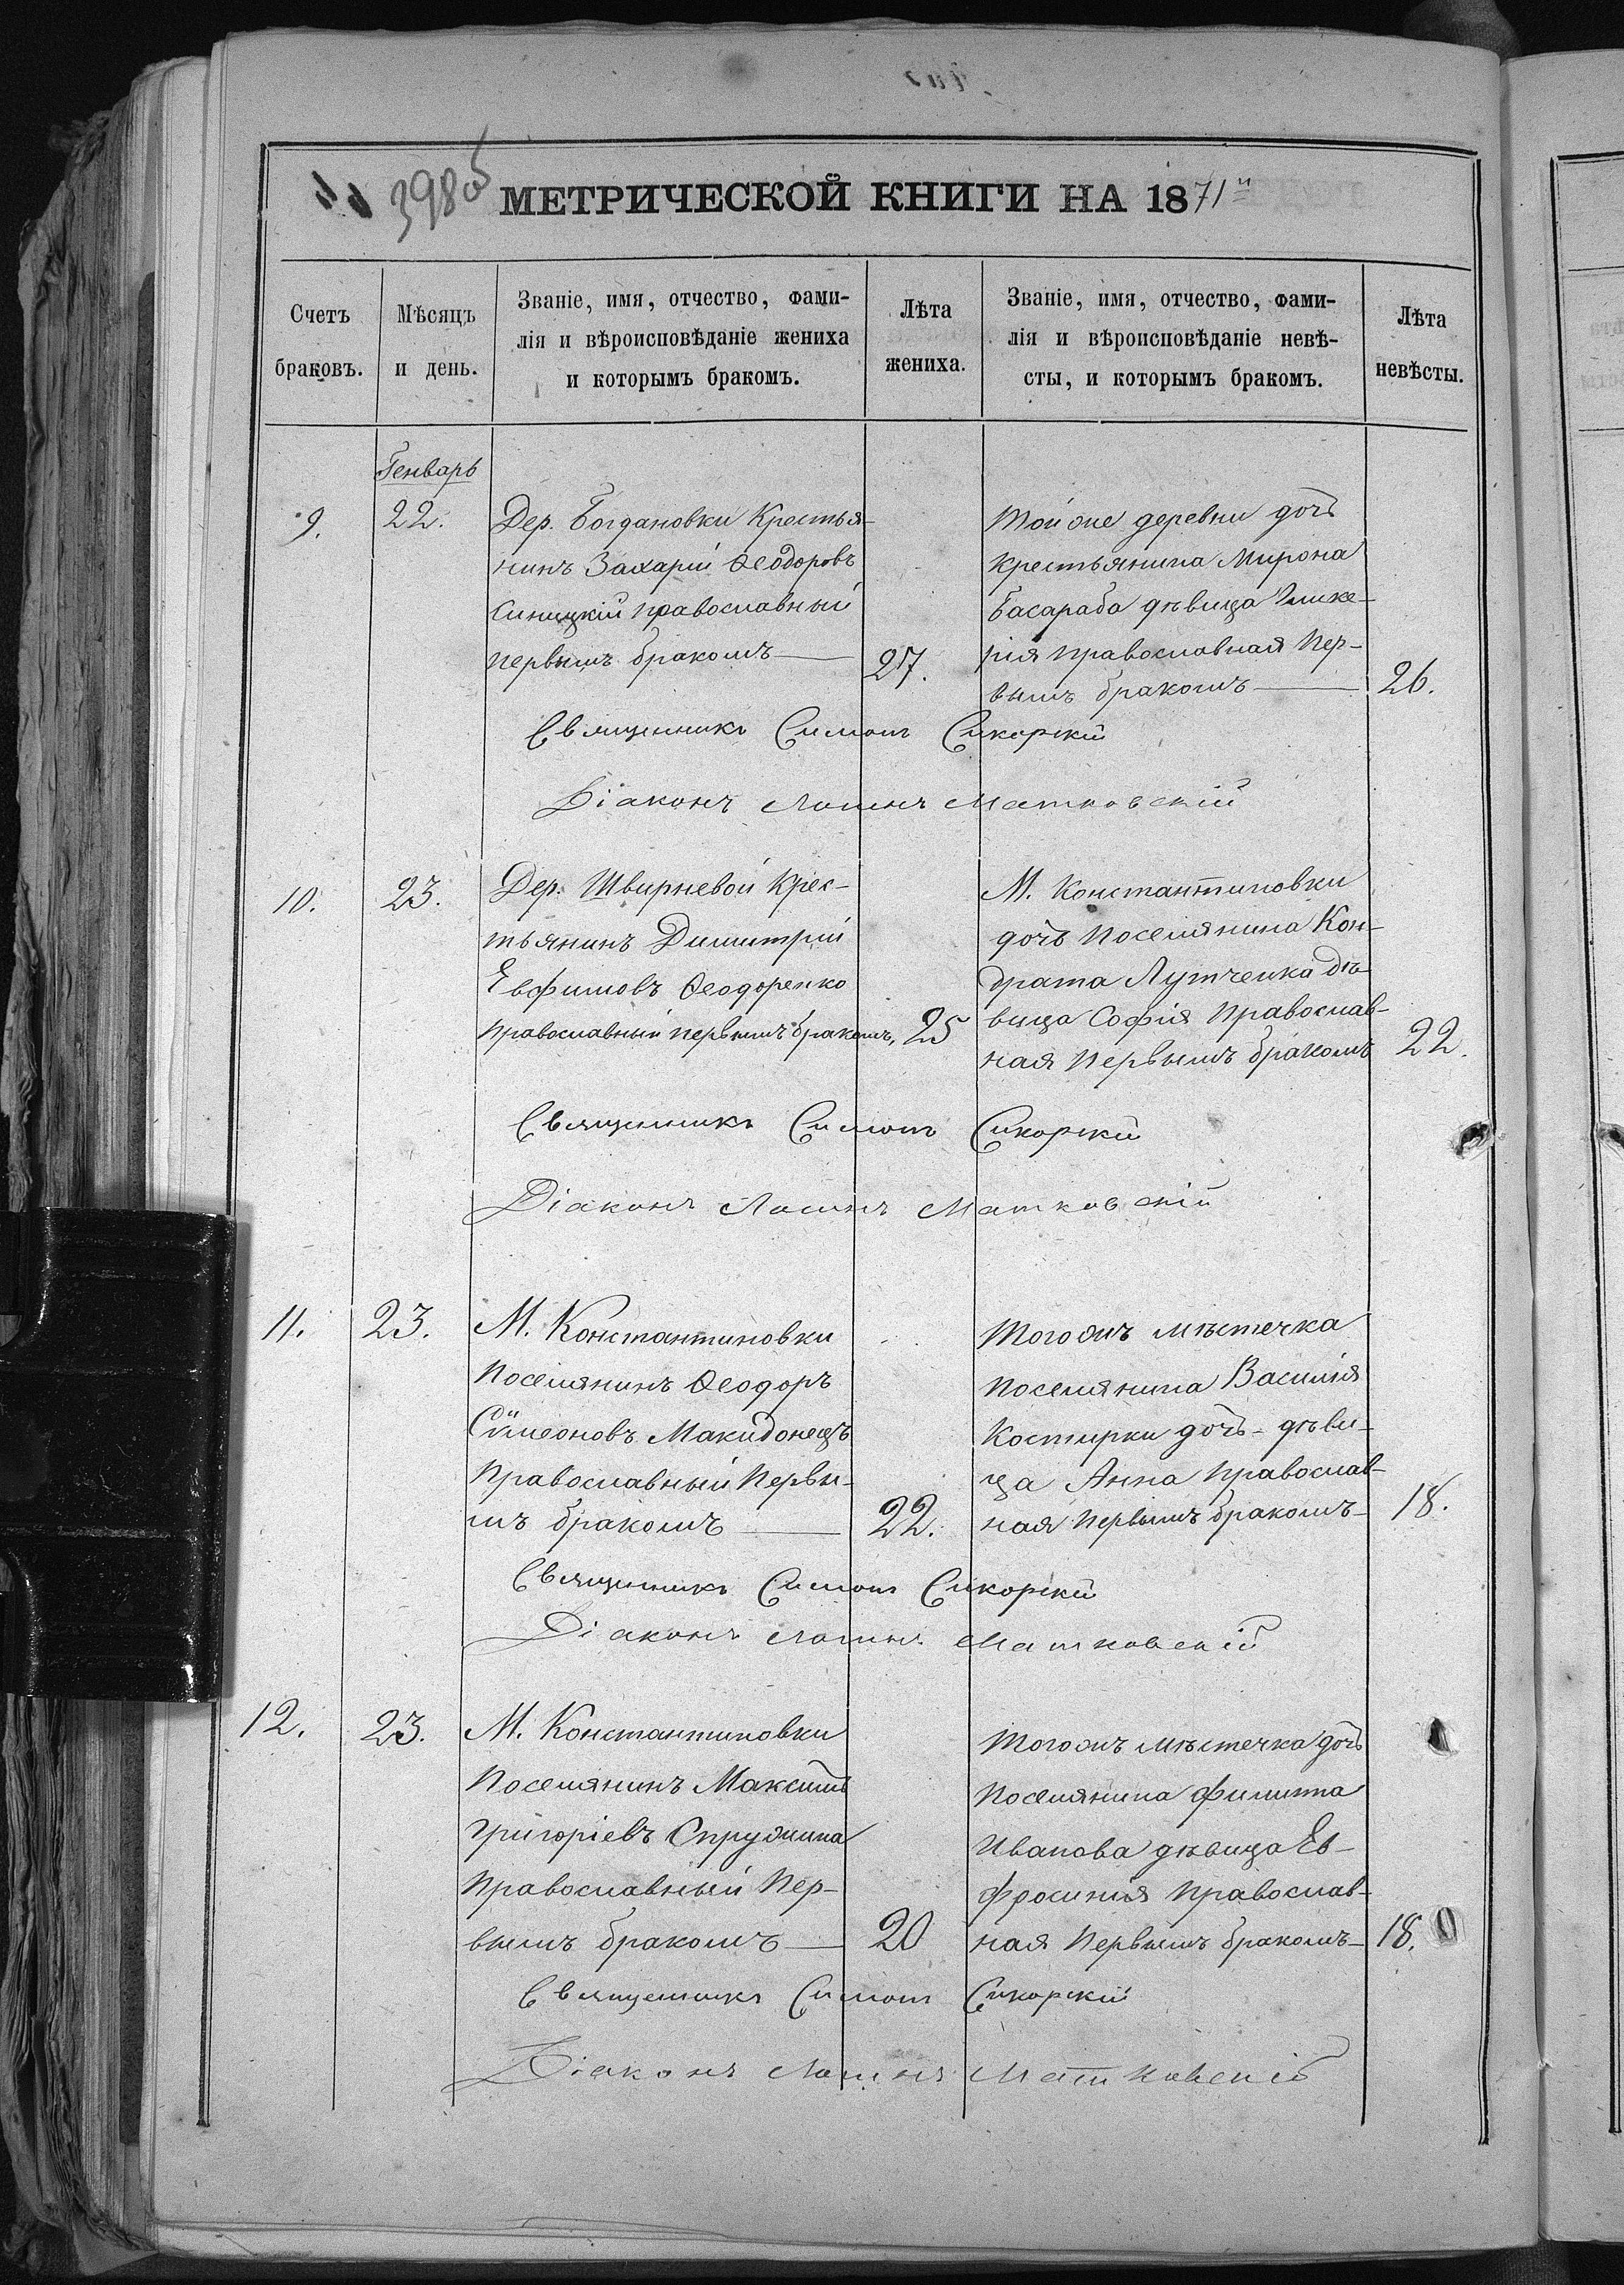 398 об
МЕТРИЧЕСКОЙ КНИГИ НА 1871й
Счетъ
браковъ.
Мѣсяцъ
и день.
Званіе, имя, отчество, фами-
лія и вѣроисповѣданіе жениха
и которымъ бракомъ.
Лѣта
жениха.
Званіе, имя, отчество, фами-
лія и вѣроисповѣданіе невѣ-
сты, и которымъ бракомъ.
Лѣта
невѣсты.
Генварь
9.
22.
Дер. Богдановки Крестья-
нинъ Захарій Ѳеодоровъ
Синицкій православный
первымъ бракомъ
27.
Той же деревни дочь
крестьянина Мирона
Басараба дѣвица Глике-
рія православная пер-
вымъ бракомъ
26.
Священникъ Симонъ Сикорскій
Діаконъ Логинъ Матковскій
10.
23.
Дер. Швырневой Крес-
тьянинъ Димитрій
Евфимовъ Ѳеодоренко
православный первымъ бракомъ,
25
М. Константиновки
дочь поселянина Кон-
драта Лутченка дѣ-
вица Софія православ-
ная первымъ бракомъ
22.
Священникъ Симонъ Сикорскій
Діаконъ Логинъ Матковскій
11.
23.
М. Константиновки
Поселянинъ Ѳеодоръ
Сѵмеоновъ Макидонецъ
Православный первы-
мъ бракомъ
22.
Тогожъ мѣстечка
поселянина Василія
Костирки дочь - дѣви-
ца Анна православ-
ная первымъ бракомъ
18.
Священникъ Симонъ Сикорскій
Діаконъ Логинъ Матковскій
12.
23.
М. Константиновки
Поселянинъ Максимъ
Григоріевъ Спружина
Православный пер-
вымъ бракомъ
20
Тогожъ мѣстечка дочь
поселянина Филиппа
Иванова дѣвица Ев-
фросинія православ-
ная первымъ бракомъ
18.
Священникъ Симонъ Сикорскій
Діаконъ Логинъ Матковскій